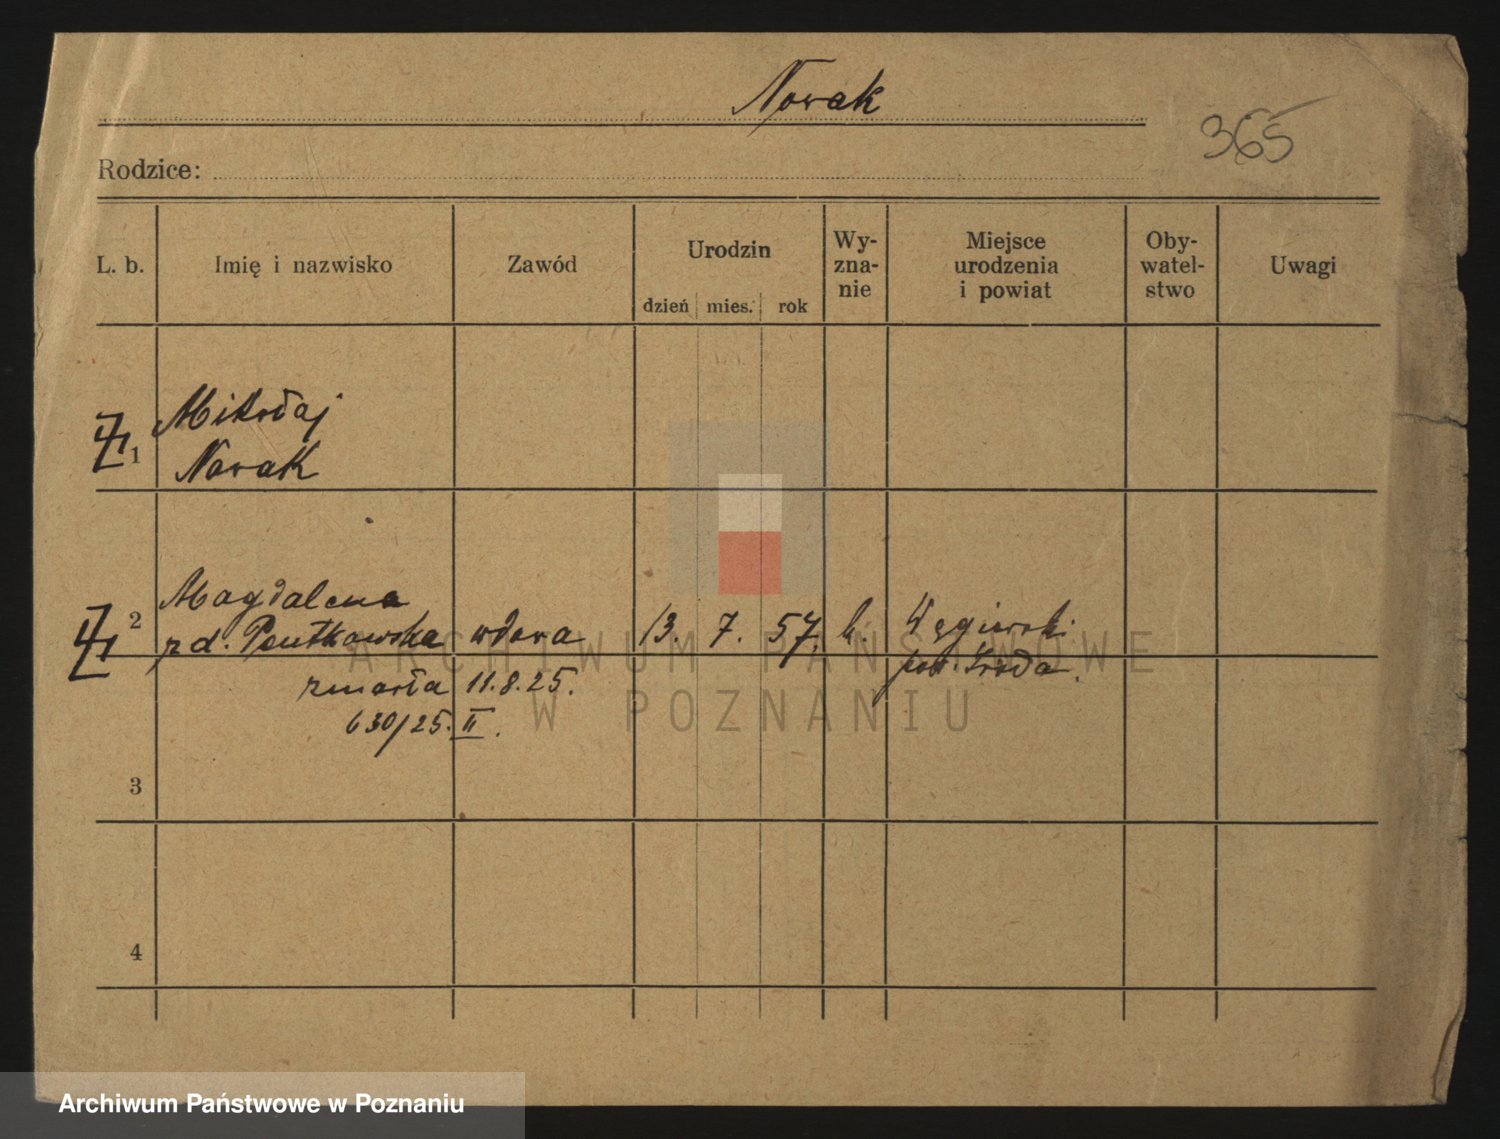 Nowak
365
Rodzice:
L. b.
Imię i nazwisko
Zawód
Urodzin
dzień mies. rok
Wy-
zna-
nie
Miejsce
urodzenia
i powiat
Oby-
watel-
stwo
Uwagi
1
Mikołaj
Nowak
2
Magdalena
zd. Pentkowska wdowa 13. 7. 57. k. Węgierski
pow. Środa.
zmarła 11.8.25.
630/25. II.
3
4
ARCHIWUM PAŃSTWOWE
W POZNANIU
Archiwum Państwowe w Poznaniu